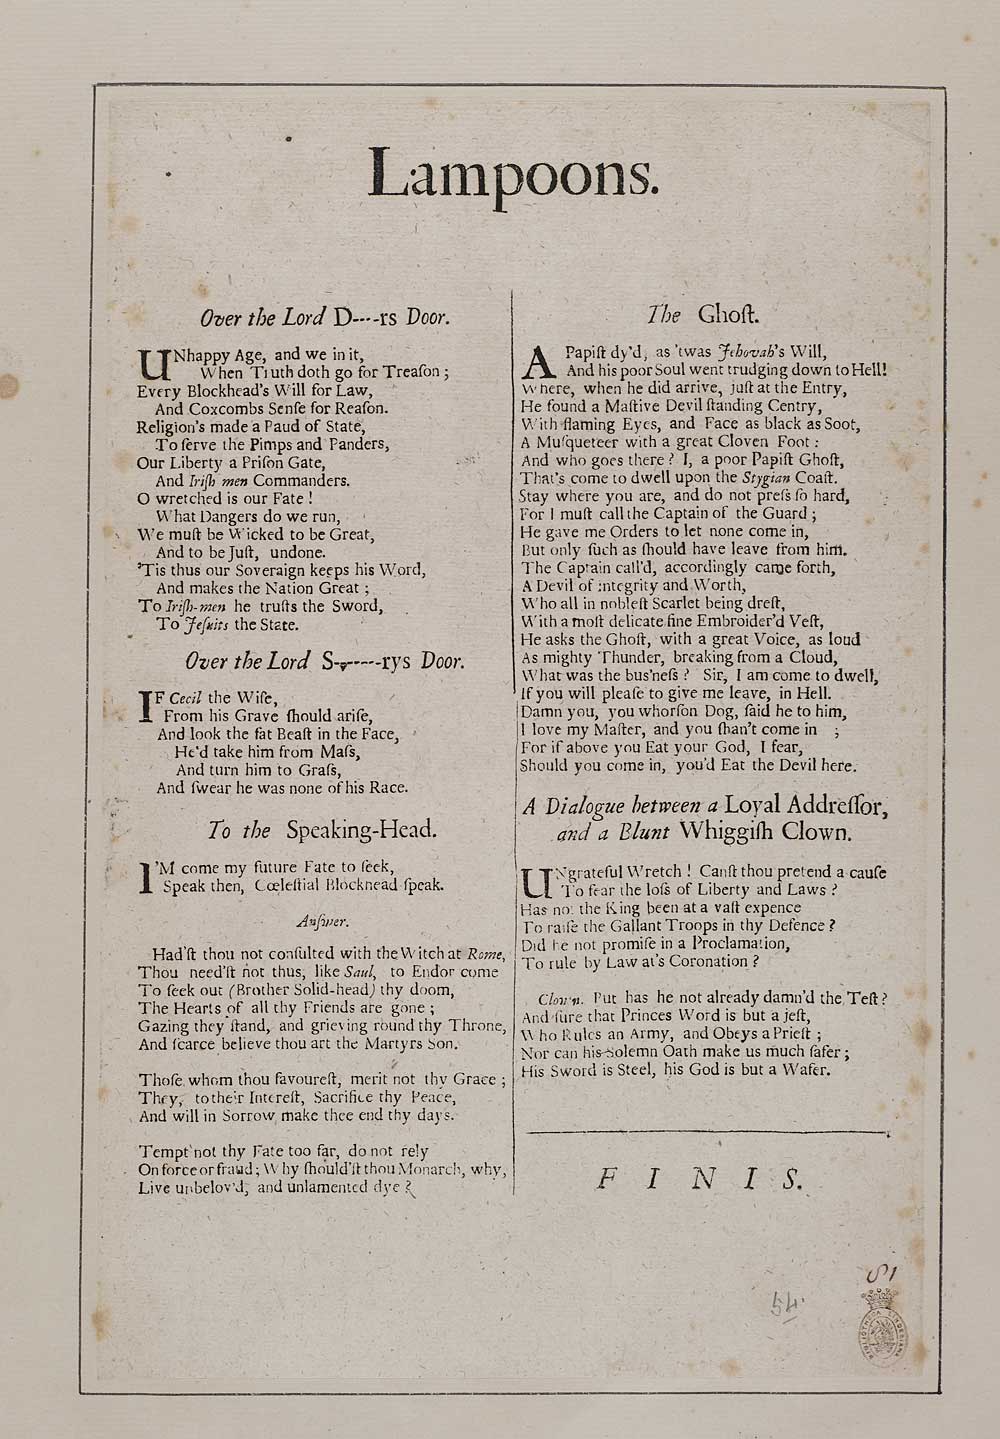 Lampoons.
Over the Lord D----rs Door.
UNhappy Age, and we in it,
When Truth doth go for Treaſon ;
Every Blockhead's Will for Law,
And Coxcombs Senſe for Reaſon.
Religion's made a Paud of State,
To ſerve the Pimps and Panders,
Our Liberty a Priſon Gate,
And Iriſh men Commanders.
O wretched is our Fate !
What Dangers do we run,
We muſt be Wicked to be Great,
And to be Juſt, undone.
'Tis thus our Soveraign keeps his Word,
And makes the Nation Great ;
To Iriſh-men he truſts the Sword,
To Jeſuits the State.
Over the Lord S-----rys Door.
IF Cecil the Wiſe,
From his Grave ſhould ariſe,
And look the fat Beaſt in the Face,
He'd take him from Maſs,
And turn him to Graſs,
And ſwear he was none of his Race.
To the Speaking-Head.
I'M come my future Fate to ſeek,
Speak then, Cœleſtial Blockhead ſpeak.
Anſwer.
Had'ſt thou not conſulted with the Witch at Rome,
Thou need'ſt not thus, like Saul, to Endor come
To ſeek out (Brother Solid-head) thy doom,
The Hearts of all thy Friends are gone ;
Gazing they ſtand, and grieving round thy Throne,
And ſcarce believe thou art the Martyrs Son.
Thoſe whom thou favoureſt, merit not thy Grace ;
They, to their Intereſt, Sacrifice thy Peace,
And will in Sorrow make thee end thy days.
Tempt not thy Fate too far, do not rely
On force or fraud ; Why ſhould'ſt thou Monarch, why,
Live unbelov'd, and unlamented dye ?
The Ghoſt.
A Papiſt dy'd, as 'twas Jehovah's Will,
And his poor Soul went trudging down to Hell!
Where, when he did arrive, juſt at the Entry,
He found a Maſtive Devil ſtanding Centry,
With flaming Eyes, and Face as black as Soot,
A Muſqueteer with a great Cloven Foot :
And who goes there ? I, a poor Papiſt Ghoſt,
That's come to dwell upon the Stygian Coaſt.
Stay where you are, and do not preſs ſo hard,
For I muſt call the Captain of the Guard ;
He gave me Orders to let none come in,
But only ſuch as ſhould have leave from him.
The Captain call'd, accordingly came forth,
A Devil of integrity and Worth,
Who all in nobleſt Scarlet being dreſt,
With a moſt delicate fine Embroider'd Veſt,
He asks the Ghoſt, with a great Voice, as loud
As mighty Thunder, breaking from a Cloud,
What was the bus'neſs ? Sir, I am come to dwell,
If you will pleaſe to give me leave, in Hell.
Damn you, you whorſon Dog, ſaid he to him,
I love my Maſter, and you ſhan't come in ;
For if above you Eat your God, I fear,
Should you come in, you'd Eat the Devil here.
A Dialogue between a Loyal Addreſſor,
and a Blunt Whiggiſh Clown.
UNgrateful Wretch ! Canſt thou pretend a cauſe
To fear the loſs of Liberty and Laws ?
Has not the King been at a vaſt expence
To raiſe the Gallant Troops in thy Defence ?
Did he not promiſe in a Proclamation,
To rule by Law at's Coronation ?
Clown. But has he not already damn'd the Teſt ?
And ſure that Princes Word is but a jeſt,
Who Rules an Army, and Obeys a Prieſt ;
Nor can his Solemn Oath make us much ſafer ;
His Sword is Steel, his God is but a Wafer.
F I N I S.
54
BIBLIOTHECA LINDESIANA